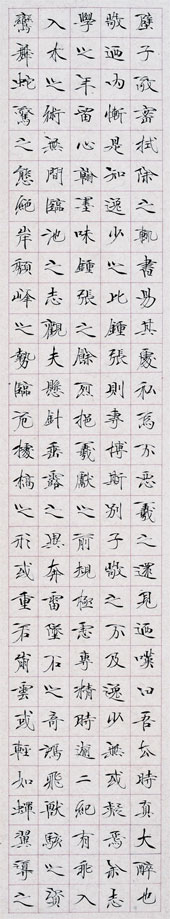 壁子敬密拭除之輒書易其處私爲不惡羲之還見迺嘆曰吾去時真大醉也
敬迺內慚是知逸少之比鍾張則專博斯別子敬之不及逸少無或疑焉余志
學之年留心翰墨味鍾張之餘烈挹羲獻之前規極慮專精時逾二紀有乖入
入木之術無間臨池之志觀夫懸針垂露之異奔雷墜石之奇鴻飛獸駭之資
鸞舞蛇驚之態絕岸頹峰之勢臨危據槁之形或重若崩雲或輕如蟬翼導之